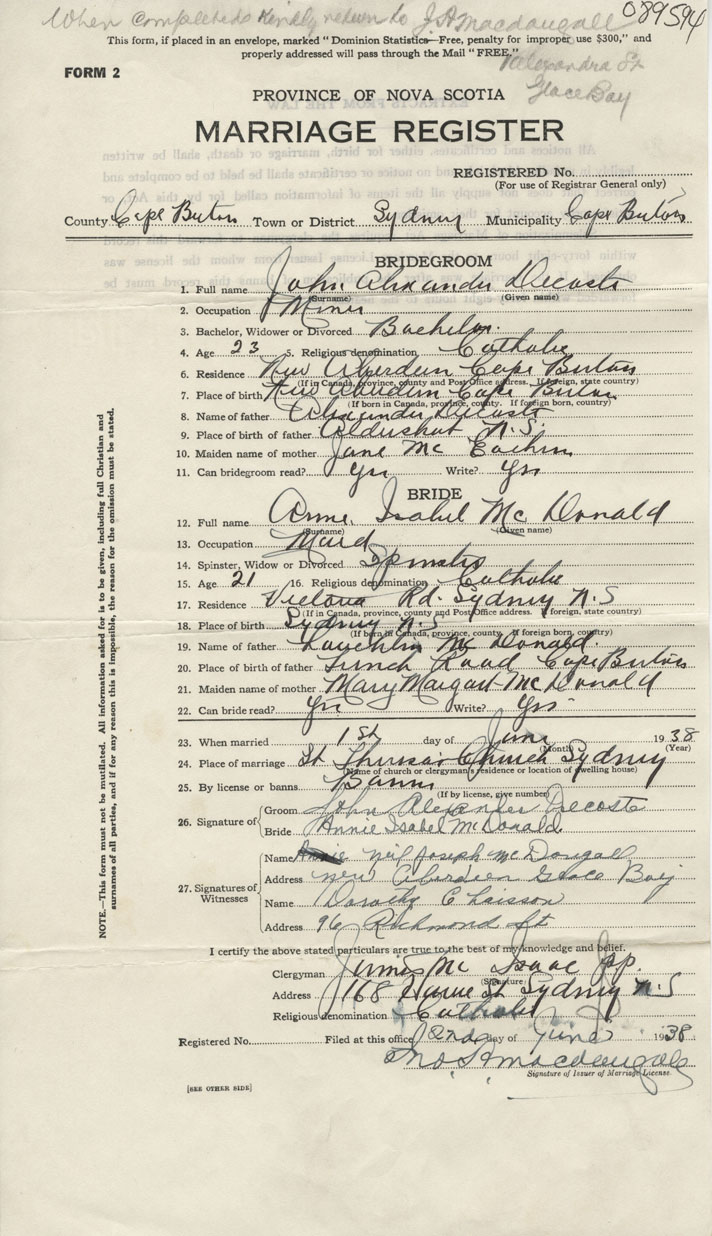 When completed Kindly return to J.A. Macdougall 089594
This form, if placed in an envelope, marked "Dominion Statistics—Free, penalty for improper use $300," and
properly addressed will pass through the Mail "FREE."
Alexandra St
Glace Bay
FORM 2
PROVINCE OF NOVA SCOTIA
MARRIAGE REGISTER
REGISTERED No.
(For use of Registrar General only)
County Cape Breton Town or District Sydney Municipality Cape Breton
BRIDEGROOM
1. Full name John Alexander Decoste
(Surname) (Given name)
2. Occupation Miner
3. Bachelor, Widower or Divorced Bachelor.
4. Age 23 5. Religious denomination Catholic
6. Residence New Aberdeen Cape Breton
(If in Canada, province, county and Post Office address. If foreign, state country)
7. Place of birth New Aberdeen Cape Breton
(If born in Canada, province, county. If foreign born, country)
8. Name of father Alexander Decoste
9. Place of birth of father Ardushat N.S.
10. Maiden name of mother Jane Mc Eachern
11. Can bridegroom read? Yes Write? Yes
BRIDE
12. Full name Anne Isabel Mc Donald
(Surname) (Given name)
13. Occupation Maid
14. Spinster, Widow or Divorced Spinster
15. Age 21 16. Religious denomination Catholic
17. Residence Victoria Rd. Sydney N.S
(If in Canada, province, county and Post Office address. If foreign, state country)
18. Place of birth Sydney N.S
(If born in Canada, province, county. If foreign born, country)
19. Name of father Lauchlin Mc Donald.
20. Place of birth of father French Road Cape Breton
21. Maiden name of mother Mary Margaret Mc Donald
22. Can bride read? Yes Write? Yes
23. When married 1st day of June 1938
(Month) (Year)
24. Place of marriage St Theresa's Church Sydney
(Name of church or clergyman's residence or location of dwelling house)
25. By license or banns Banns
(If by license, give number)
26. Signature of
Groom John Alexander Decoste
Bride Annie Isabel McDonald
27. Signatures of Witnesses
Name Neil Joseph McDougall
Address New Aberdeen Glace Bay
Name Dorothy Chiasson
Address 96 Richmond St
I certify the above stated particulars are true to the best of my knowledge and belief.
Clergyman James Mc Isaac pp.
(Signature)
Address 168 St Sydney N.S
Religious denomination Catholic
Registered No. Filed at this office 2nd day of June 1938
Jno A Macdougall
Signature of Issuer of Marriage License
[SEE OTHER SIDE]
NOTE.—This form must not be mutilated. All information asked for is to be given, including full Christian and
surnames of all parties, and if for any reason this is impossible, the reason for the omission must be stated.